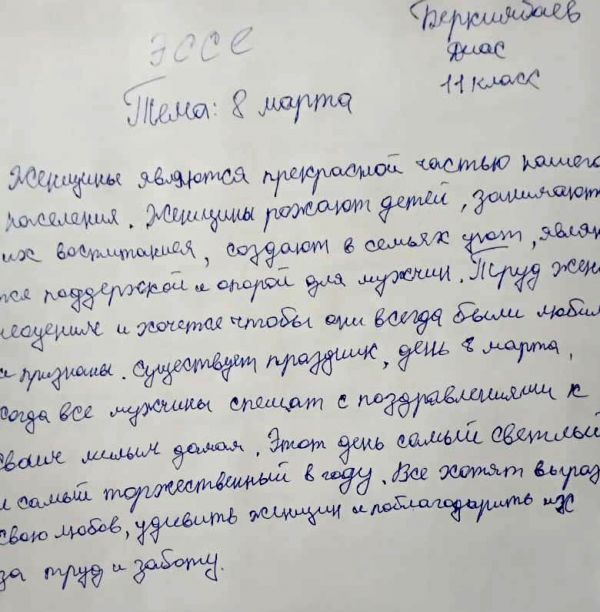 Беркинбаев
Диас
11 класс
ЭССЕ
Тема: 8 марта
Женщины являются прекрасной частью нашего
населения. Женщины рожают детей, занимают
их воспитания, создают в семьях уют, являю
тся поддержкой и опорой для мужчин. Труд жен
неоценим и хочется чтобы они всегда были любим
и признаны. Существует праздник, день 8 марта,
когда все мужчины спешат с поздравлениями к
своим милым дамам. Этот день самый светлый
и самый торжественный в году. Все хотят выраз
свою любов, удивить женщин и поблагодарить их
за труд и заботу.